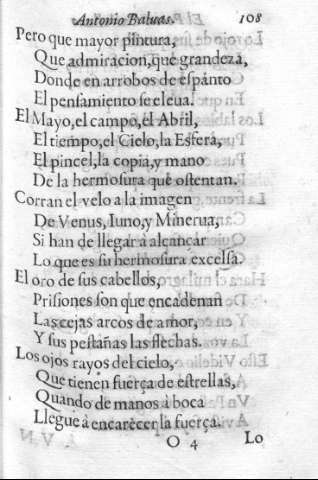 Antonio Baluas. 108
Pero que mayor pintura,
Que admiracion, que grandeza,
Donde en arrobos de espanto
El pensamiento se eleua.
El Mayo, el campo, el Abril,
El tiempo, el Cielo, la Esfera,
El pincel, la copia, y mano
De la hermosura que ostentan.
Corran el velo a la imagen
De Venus, Iuno, y Minerua,
Si han de llegar à alcançar
Lo que es su hermosura excelsa.
El oro de sus cabellos,
Prisiones son que encadenan
Las cejas arcos de amor,
Y sus pestañas las flechas.
Los ojos rayos del cielo,
Que tienen fuerça de estrellas,
Quando de manos à boca
Llegue à encarecer la fuerça.
O 4 Lo